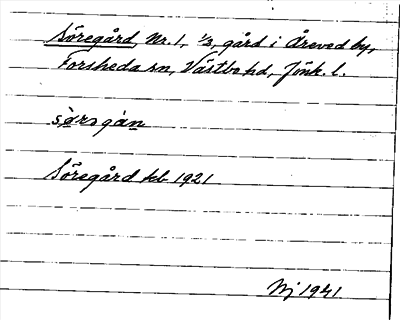 Söregård, Nr. 1, 1/2, gård i Åreved by,
Forsheda sn, Västbo hd, Jönk. l.
sǫ̀rəgàn
Söregård hb 1921
Nj 1941